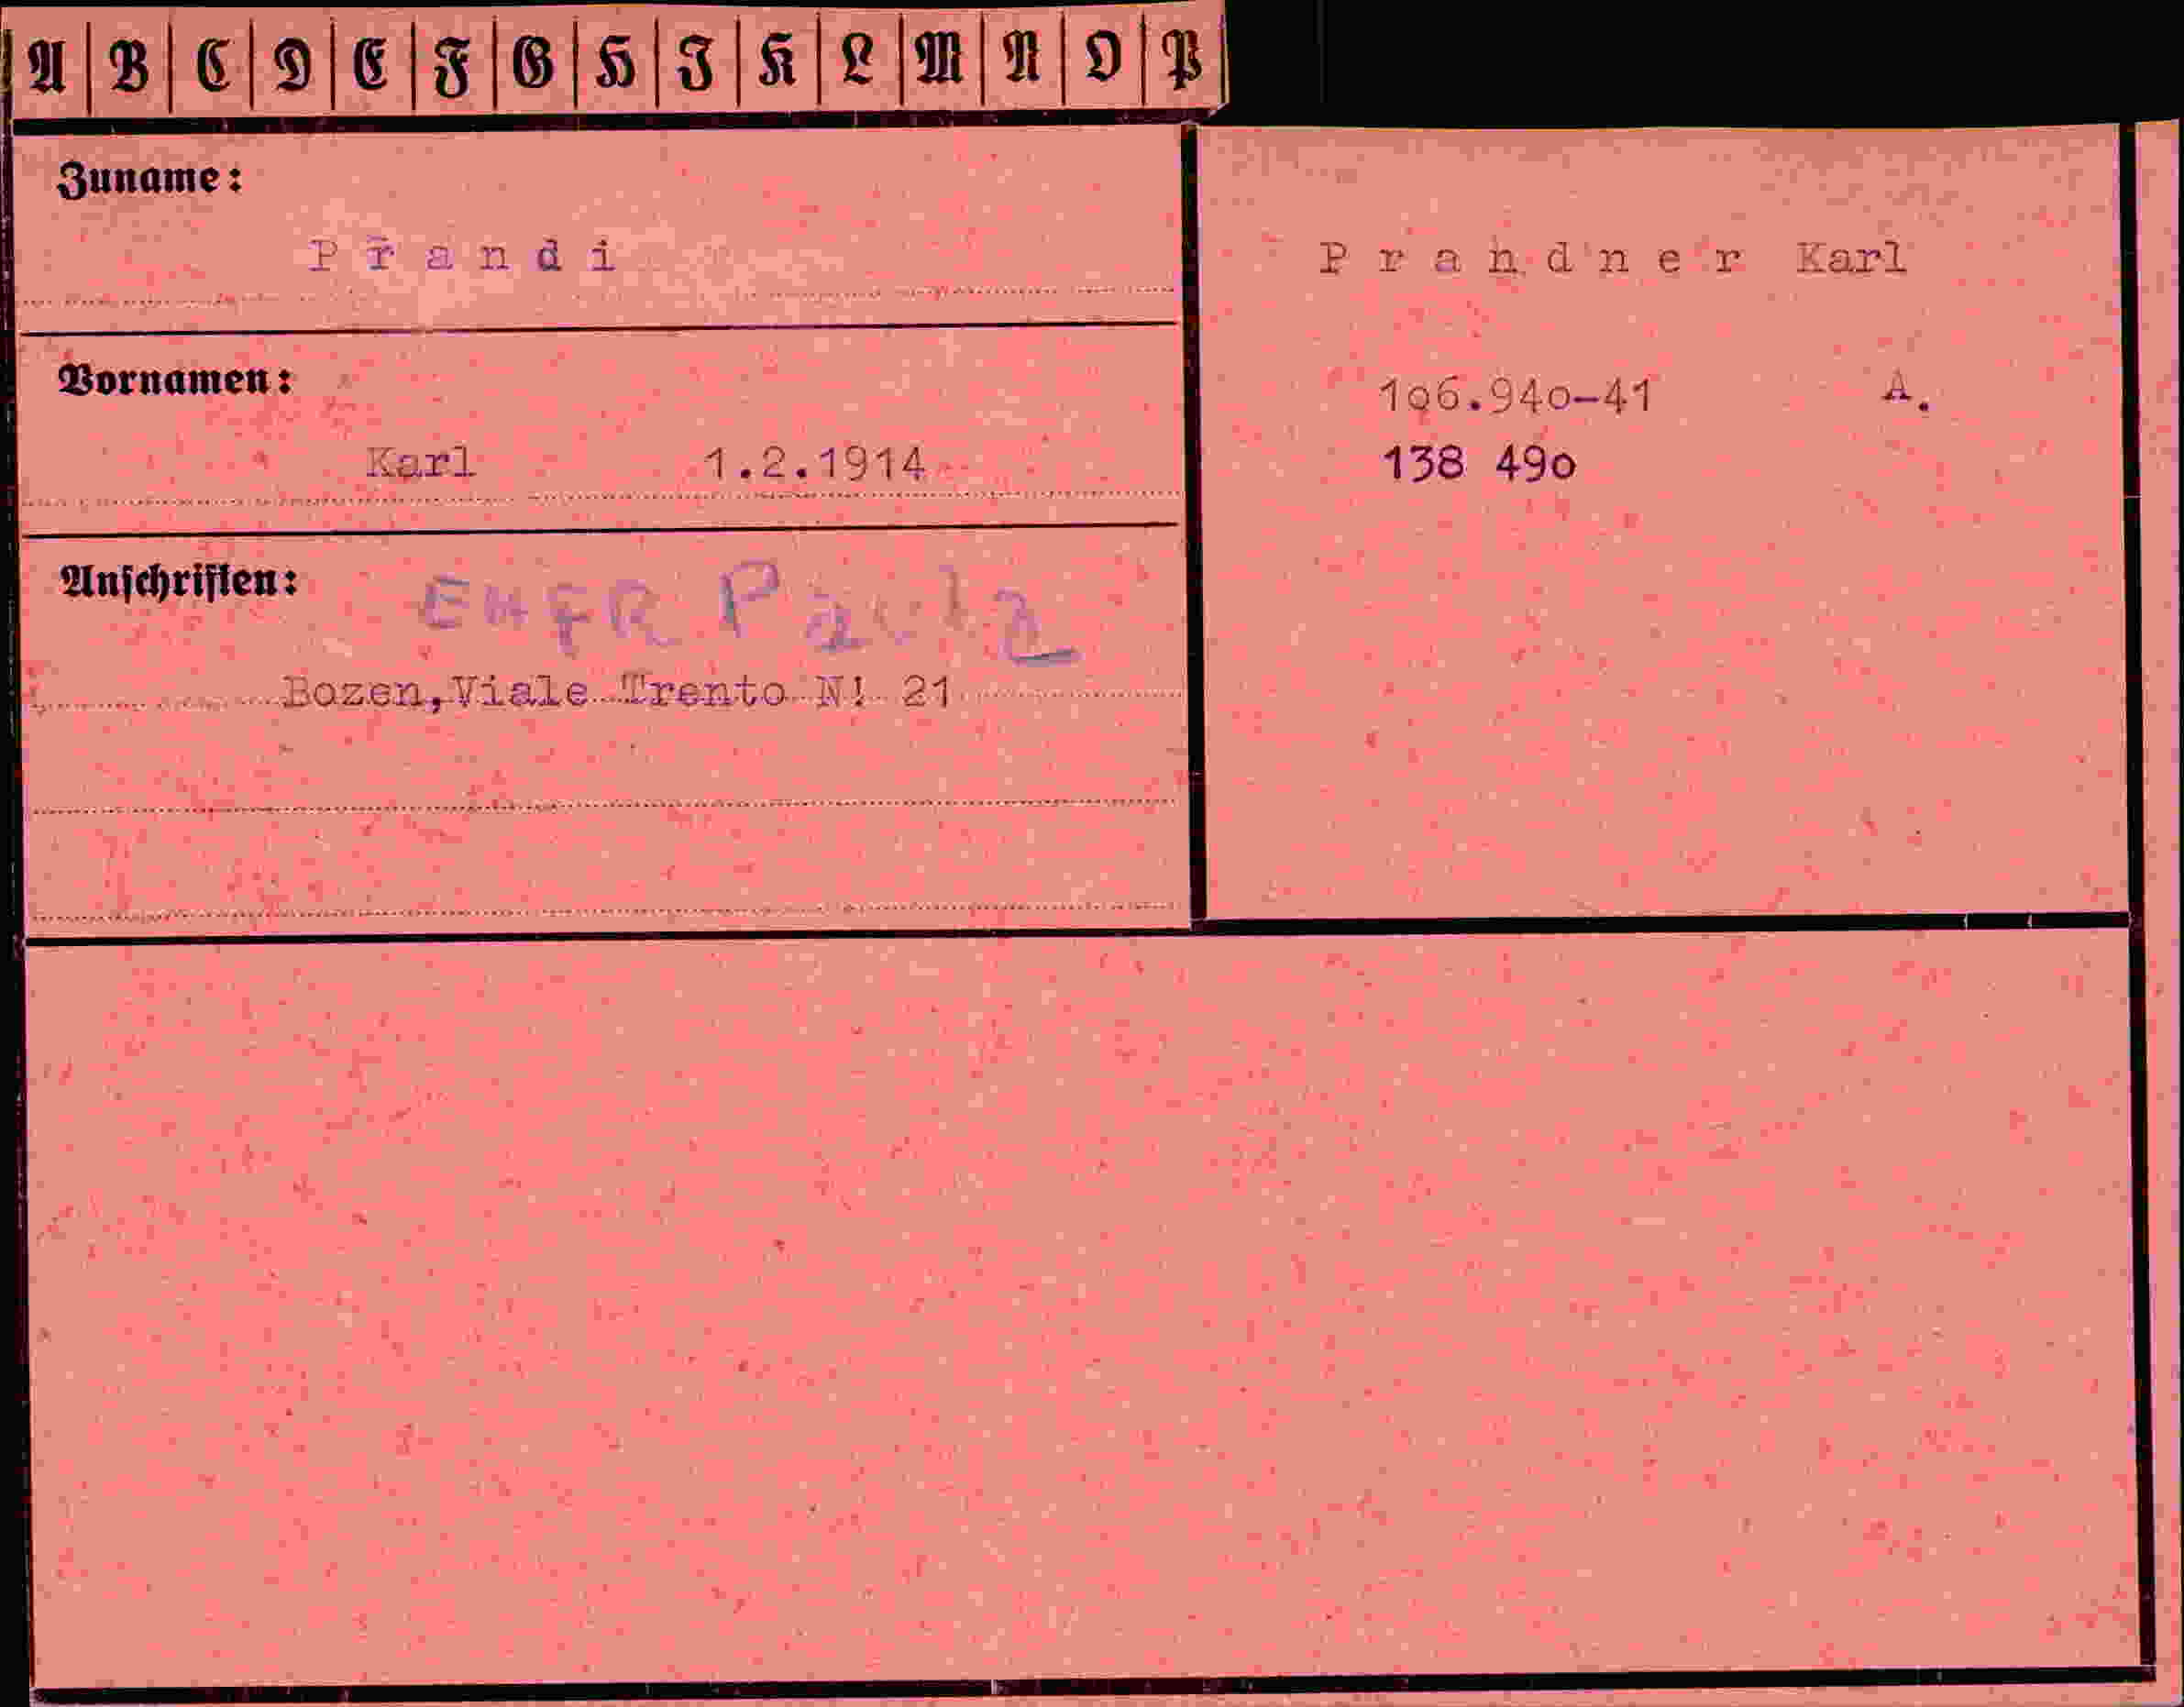 A B C D E F G H I K L M N O P
Zuname:
Prandi
Vornamen:
Karl 1.2.1914
Anschriften:
EHFR Paula
Bozen, Viale Trento N! 21
Prandner Karl
106.940-41 A.
138 490